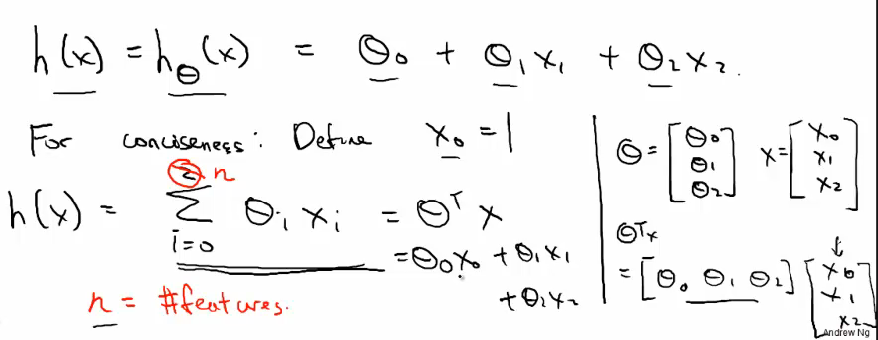 h(x) = h_θ(x) = θ₀ + θ₁x₁ + θ₂x₂.
For conciseness: Define x₀ = 1
2 n
h(x) = Σ θᵢ xᵢ = θᵀ x
i=0
= θ₀x₀ + θ₁x₁
+ θ₂x₂
n = #features.
θ = [θ₀ θ₁ θ₂] x = [x₀ x₁ x₂]
θᵀx
= [θ₀ θ₁ θ₂] [x₀ x₁ x₂]
Andrew Ng